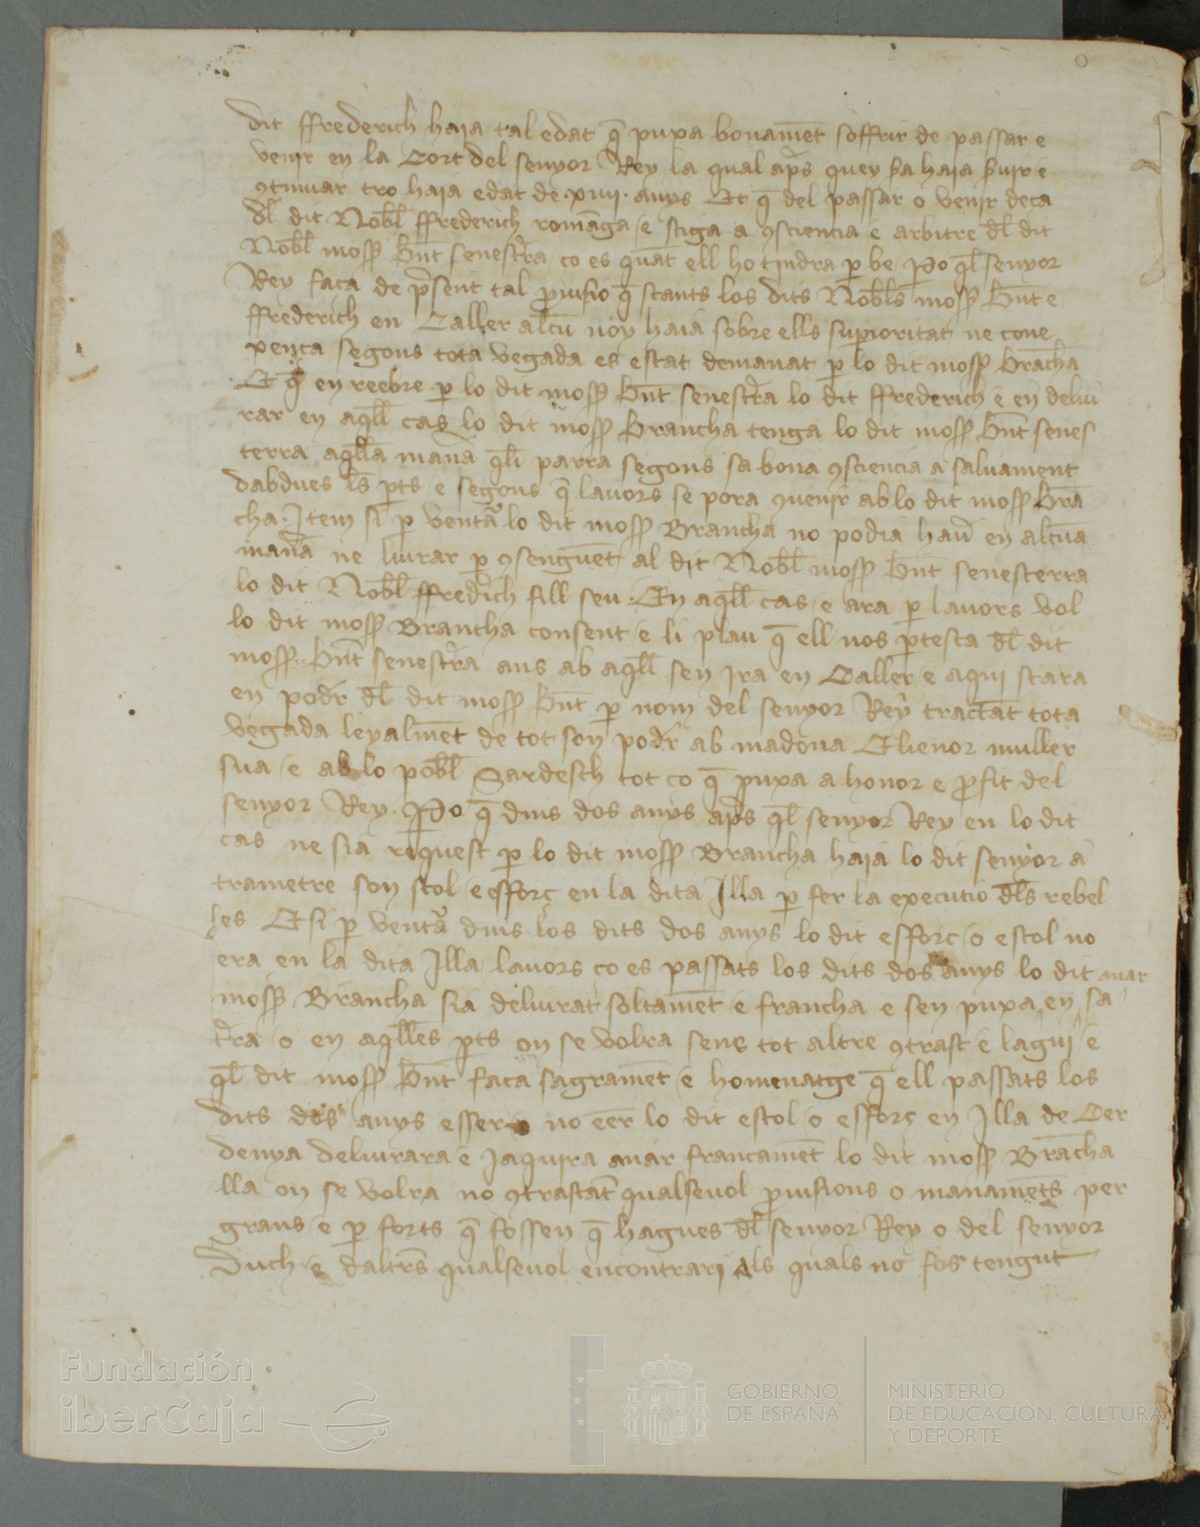 dit ffrederich haia tal edat q̄ puxa bonamēt soffrir de passar e
venir en la Cort del senyor Rey la qual ap̄s quey sa haia ßuir e
ꝯtinuar tro haia edat de xiiii. anys Et q̄ del passar o venir deca
dl̄ dit Nobl̄ ffrederich romāga e stiga a ꝯsciencia e arbitre dl̄ dit
Nobl̄ moss̄ bn̄t senestr̄a co es quāt ell ho tindra ꝑ be Ꝑo ql̄ senyor
Rey faca de p̄sent tal ꝓuisio q̄ stants los dits Nobl̄s moss̄ bn̄t e
ffrederich en Caller alcū noy haia sobre ells supioritat ne cone
xenca segons tota vegada es estat demanat ꝑ lo dit moss̄ Brācha
Et q̄ en reebre ꝑ lo dit moss̄ bn̄t senestr̄a lo dit ffrederich e en deliu
rar en aql̄l cas lo dit moss̄ Brancha tenga lo dit moss̄ bn̄t senes
terra aql̄la man̄a ql̄i parra segons sa bona ꝯsciencia a saluament
dabdues ls̄ ꝑts e segons q̄ lauors se pora ꝯuenir ab lo dit moss̄ Brā
cha. Item si ꝑ ventā lo dit moss̄ Brancha no podia hau̅ en alcūa
man̄a ne liurar ꝑ ꝯsenguēt al dit Nobl̄ moss̄ bn̄t senesterra
lo dit Nobl̄ ffredīch fill seu. En aql̄l cas e ara ꝑ lauors vol
lo dit moss̄ Brancha consent e li plau q̄ ell nos ꝑtesca dl̄ dit
moss̄ bn̄t senestr̄a ans ab aql̄l sen ira en Caller e aqui stara
en podr̄ dl̄ dit moss̄ bn̄t ꝑ nom del senyor Rey tractāt tota
vegada leyalmēt de tot son podr̄ ab madona Elienor muller
sua e ab lo pobl̄ Sardesch tot co q̄ puxa a honor e ꝓfit del
senyor Rey. Ꝑo q̄ dins dos anys ap̄s ql̄ senyor Rey en lo dit
cas ne sia request ꝑ lo dit moss̄ Brancha haia lo dit senyor a
trametre son stol e efforç en la dita Illa ꝑ fer la executio dl̄s rebel
les Et si ꝑ ventā dins los dits dos anys lo dit esforç o estol no
era en la dita Illa lauors co es passats los dits dos anys lo dit
moss̄ Brancha sia deliurat soltamēt e francha e sen puxa anar en sa
tr̄a o en aql̄les ꝑts on se volra sens tot altre ꝯtrast e lagui e
ql̄ dit moss̄ bn̄t faca sagramēt e homenatge q̄ ell passats los
dits dos anys esser o no eēr lo dit estol o esforç en Illa de Cer
denya deliurara e jaquira anar francamēt lo dit moss̄ Brācha
lla on se volra no ꝯtrastāt qualseuol ꝓuisions o manamēts per
grans e ꝑ forts q̄ fossen q̄ hagues dl̄ senyor Rey o del senyor
Duch e daltr̄s qualseuol encontrari als quals no fos tengut
Fundación
iberCaja
GOBIERNO
DE ESPAÑA
MINISTERIO
DE EDUCACIÓN, CULTURA
Y DEPORTE